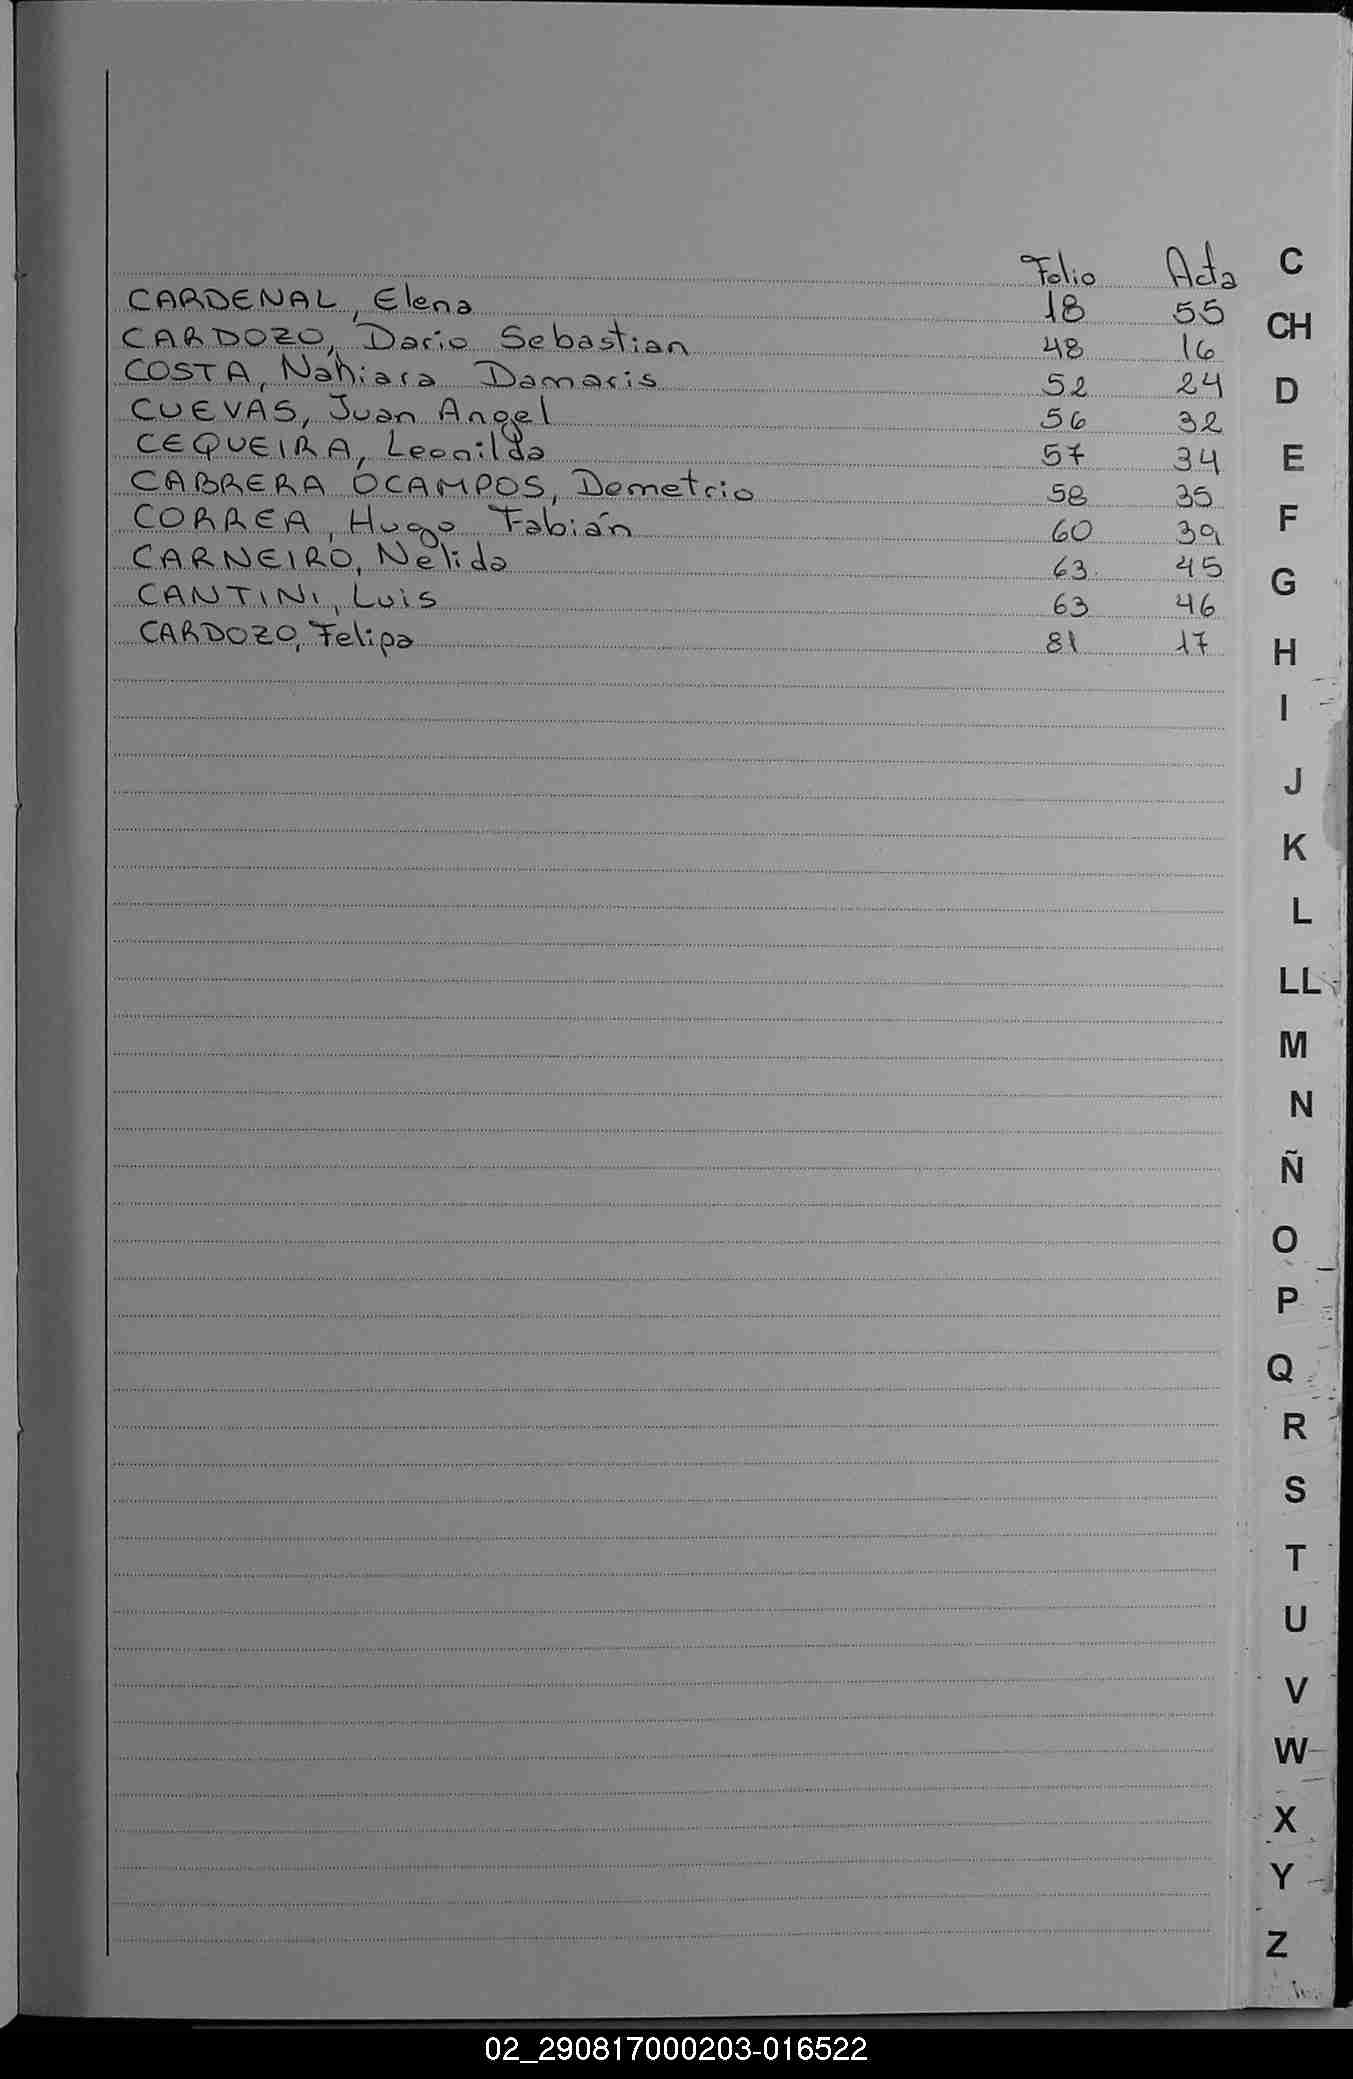 Folio Acta
CARDENAL, Elena 18 55
CARDOZO, Dario Sebastian 48 16
COSTA, Nahiara Damaris 52 24
CUEVAS, Juan Angel 56 32
CEQUEIRA, Leonilda 57 34
CABRERA OCAMPOS, Demetrio 58 35
CORREA, Hugo Fabián 60 39
CARNEIRO, Nélida 63 45
CANTINI, Luis 63 46
CARDOZO, Felipa 81 17
C
CH
D
E
F
G
H
I
J
K
L
LL
M
N
Ñ
O
P
Q
R
S
T
U
V
W
X
Y
Z
02_290817000203-016522